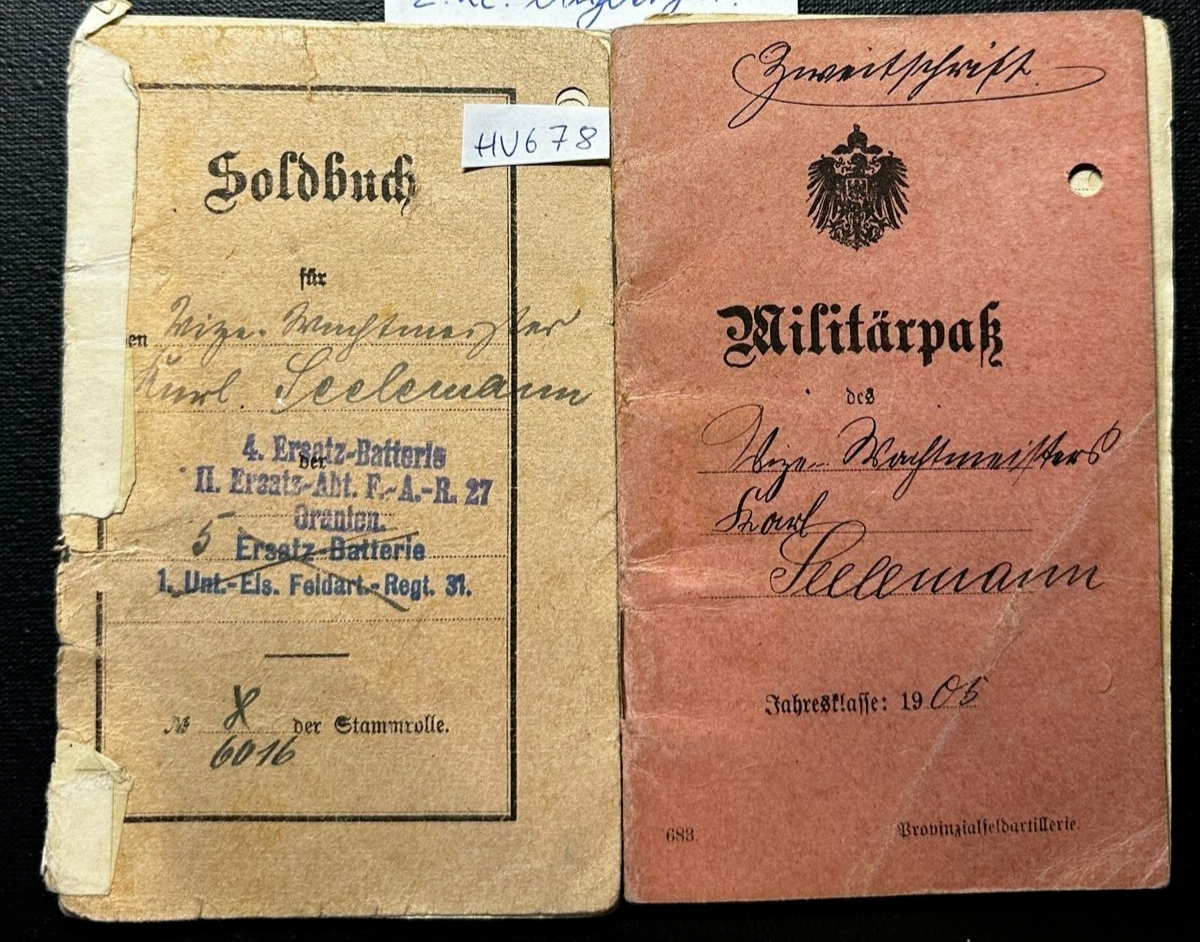 HV678
Soldbuch
für
en Vize-Wachtmeister
Karl Seelemann
4. Ersatz-Batterie
der
II. Ersatz-Abt. F.-A.-R. 27
Oranien.
5 Ersatz-Batterie
1. Unt.-Els. Feldart.-Regt. 31.
№ 8 der Stammrolle.
6016
Zweitschrift.
Militärpaß
des
Vize-Wachtmeisters
Karl
Seelemann
Jahresklasse: 1905
683.
Provinzialfeldartillerie.